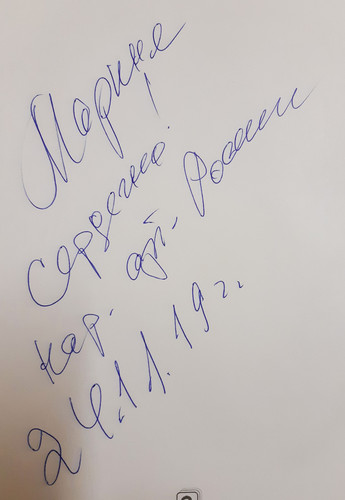 Марине!
Сердечно.
Нар. арт. России
24.11.19 г.